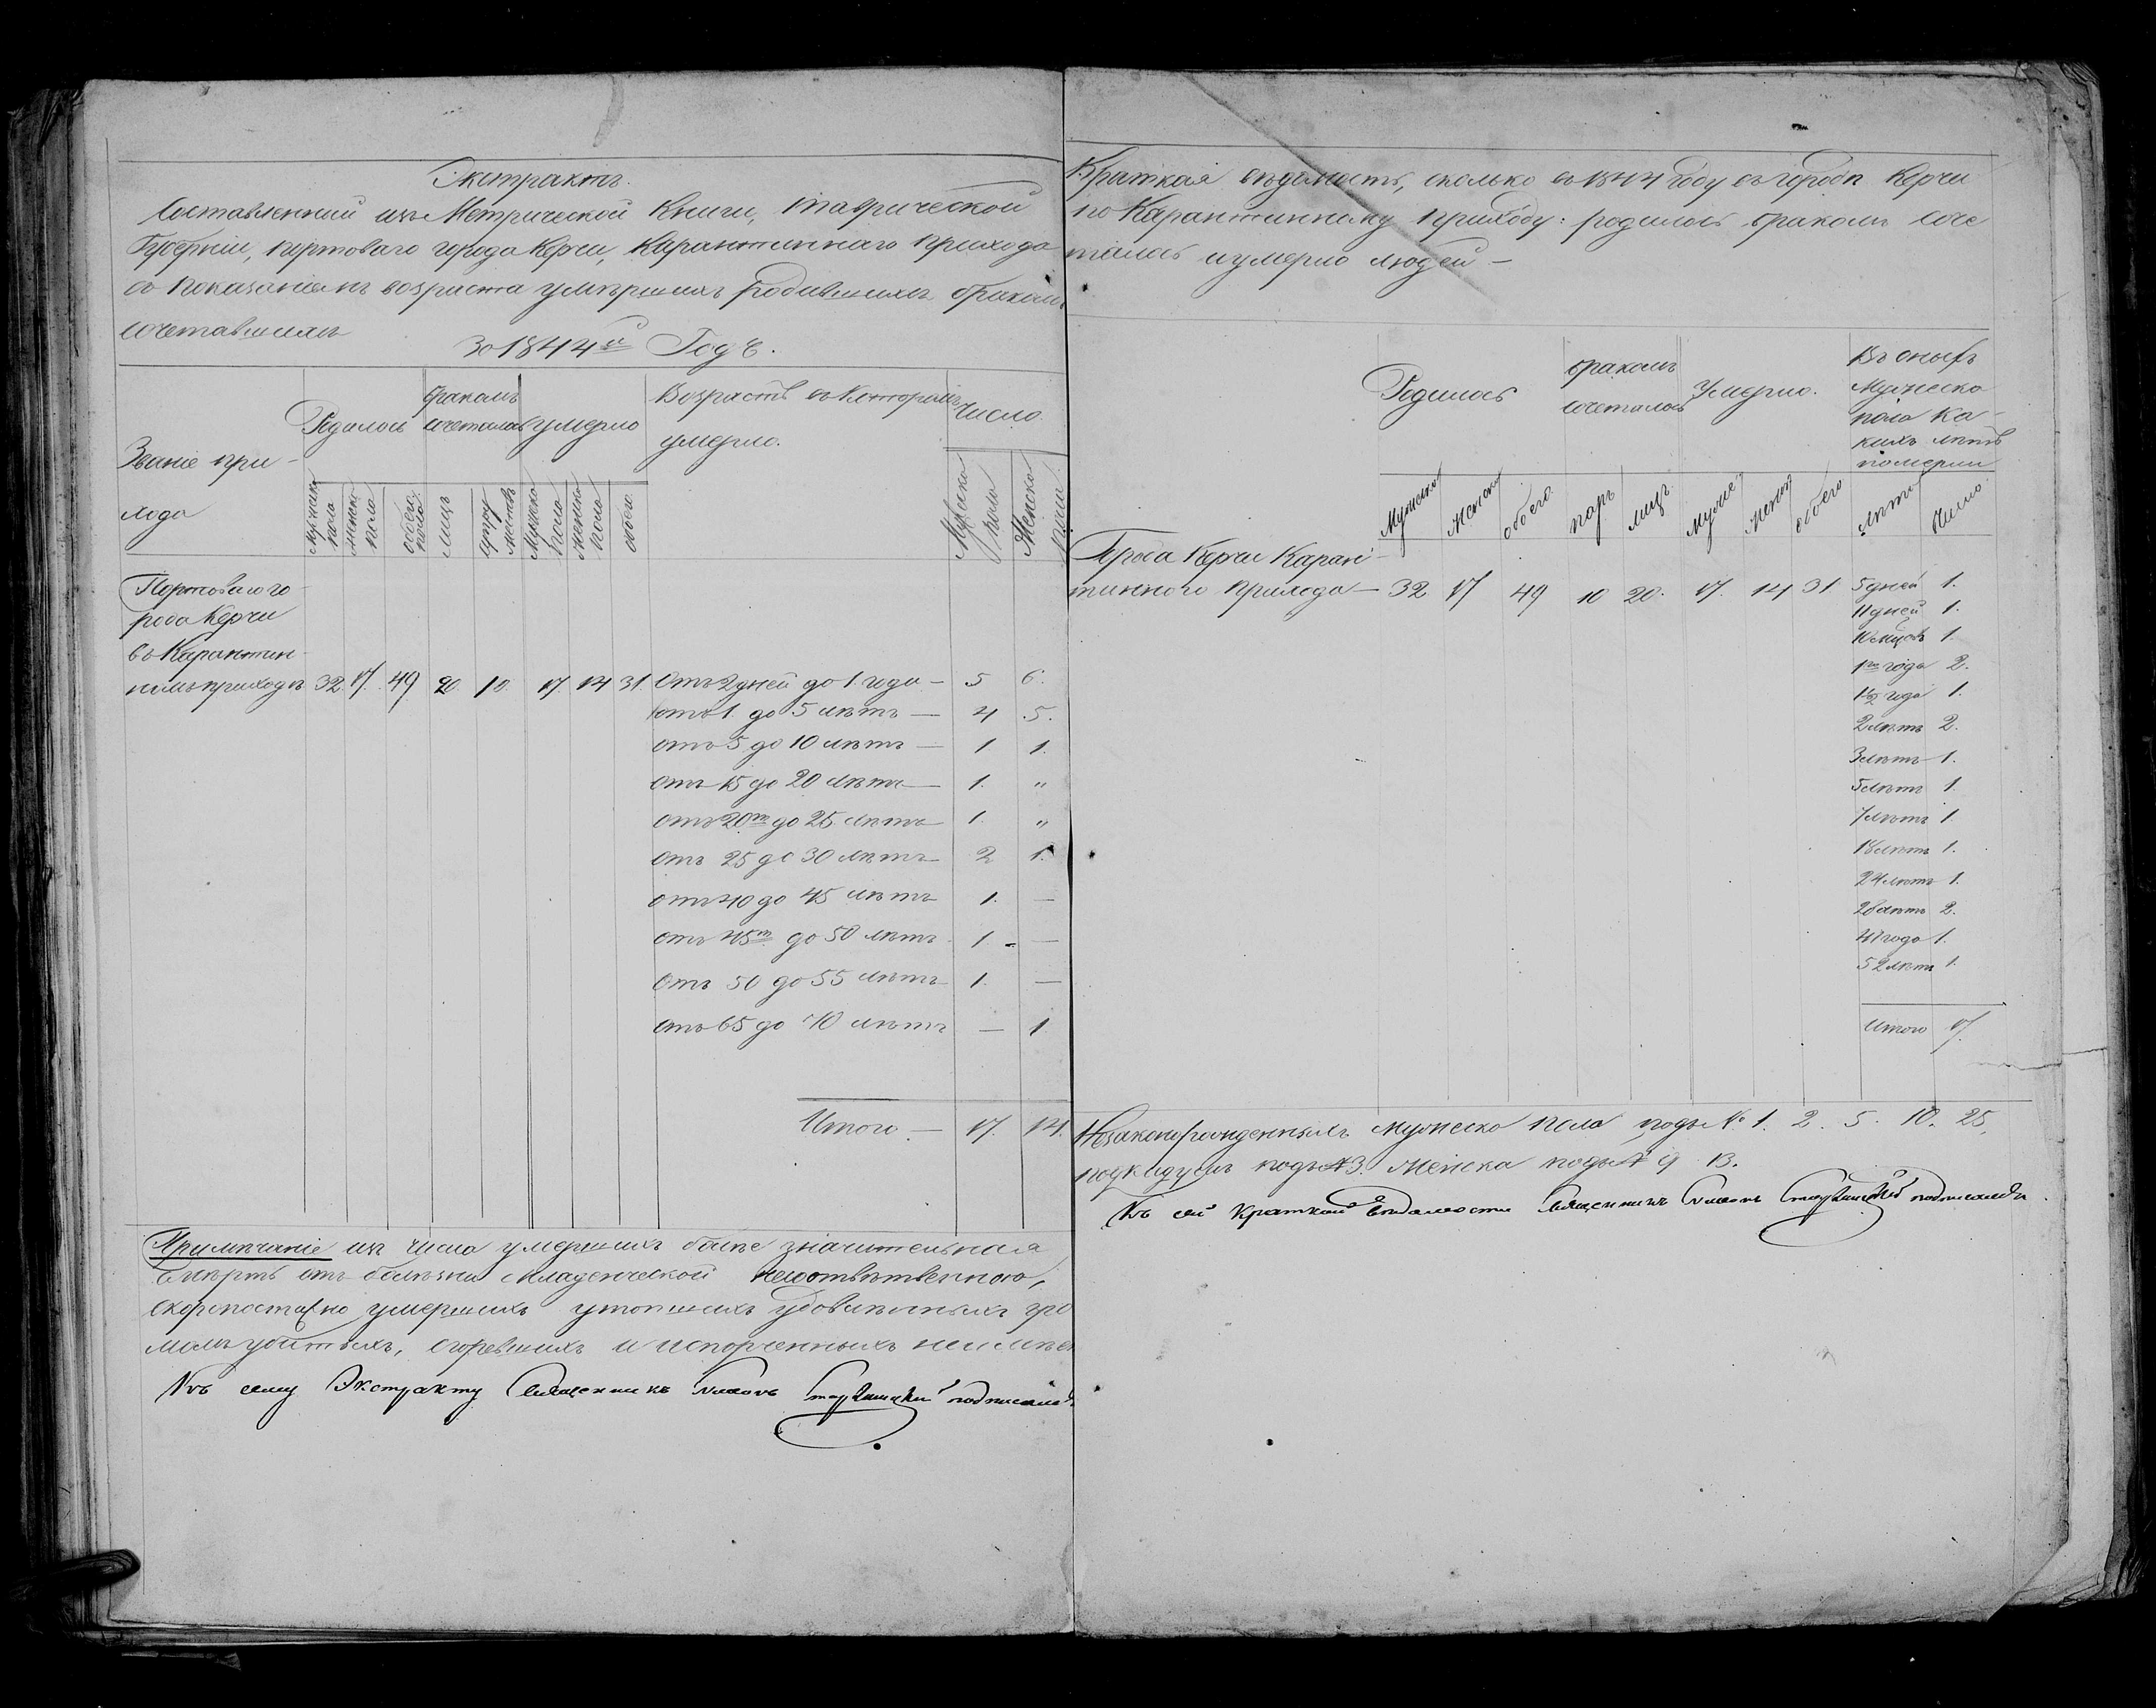 Экстрактъ.
Составленный изъ Метрической Книги, Таврической
Губерніи, портоваго города Керчи, Карантиннаго прихода
съ показаніемъ возраста умершихъ родившихъ бракомъ
сочетавшихъ
За 1844й Годъ.
Званіе при-
хода
Родилось
бракомъ
сочеталось
умерло
Возрастъ въ которомъ
умерло.
Число
Мужеска
пола
Женска
пола
обоего
пола
лицъ
супру
жествъ
Мужеска
пола
Женска
пола
обоего
Мужеска
пола
Женска
пола
Портоваго го-
рода Керчи
въ Карантин-
номъ приходѣ 32. 17. 49. 20. 10. 17 14 31. Отъ 2 дней до 1. года – 5 6.
отъ 1. до 5 лѣтъ — 4 5.
отъ 5 до 10 лѣтъ — 1 1.
отъ 15 до 20 лѣтъ — 1. "
отъ 20ти до 25. лѣтъ — 1. "
отъ 25 до 30 лѣтъ — 2 1.
отъ 40 до 45 лѣтъ 1. —
отъ 45ти до 50 лѣтъ 1 —
отъ 50 до 55 лѣтъ 1. —
отъ 65 до 70 лѣтъ — 1
Итого — 17. 14.
Примѣчаніе изъ числа умершихъ болѣе значительная
Смерть отъ болѣзни младенческой
скоропостижно умершихъ утопшихъ удавленныхъ гро
момъ убитыхъ, сгоревшихъ и испорченныхъ неимѣе
Къ сему Экстракту Священникъ подписался
Краткая вѣдомость, сколько въ 1844 году въ городѣ Керчи
по Карантинному приходу: родилось бракомъ соче
талось и умерло людей –
Родилось
бракомъ
сочеталось
Умерло.
Въ оныхъ
Мужеска
пола ка-
кихъ лѣтъ
померли
Мужеска
Женска
обоего
паръ
лицъ
Мужес
Женск
обоего
лѣта
Число
Города Керчи Каран-
тиннаго прихода – 32. 17 49 10 20. 17. 14 31 5 дней 1.
11 дней 1.
10 мцовъ 1.
1го года 2.
1 1/2 года 1.
2 лѣтъ 2.
3 лѣтъ 1.
5 лѣтъ 1
7 лѣтъ 1
18 лѣтъ 1.
24 лѣтъ 1.
28 лѣтъ 2.
47 года 1.
52 лѣтъ 1.
Итого 17.
Незаконорожденныхъ мужеска пола подъ № 1. 2. 5. 10. 25,
подкидышъ подъ № 3. Женска подъ № 9 13.
Къ сей Краткой Вѣдомости Священникъ подписался